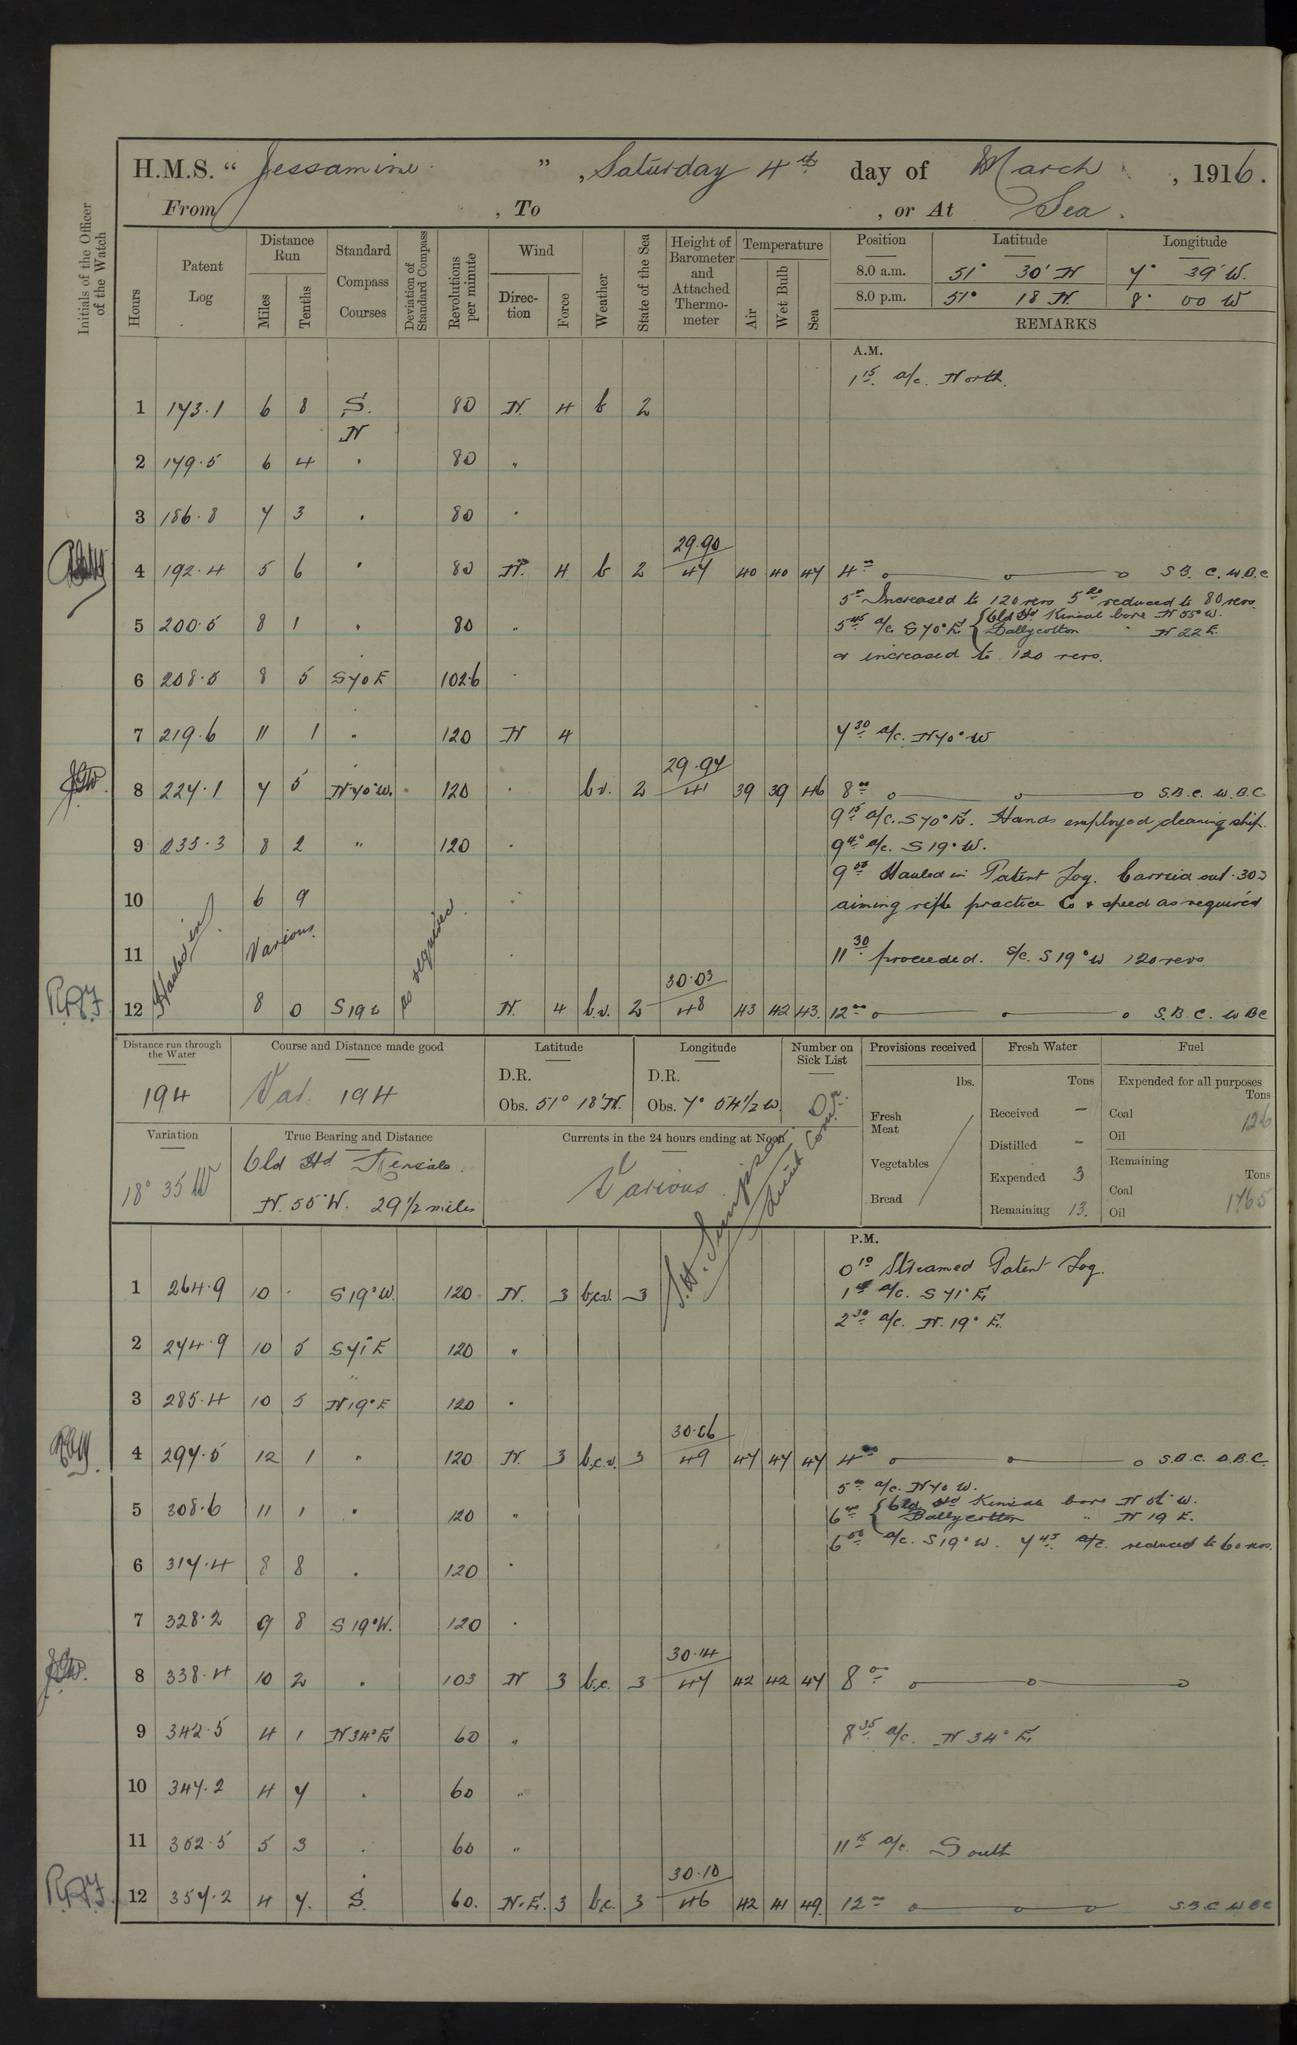 H.M.S. “ Jessamine ” , Saturday 4th day of March , 1916.
From , To , or At Sea.
Initials of the Officer of the Watch
Hours
Patent Log
Distance Run
Miles Tenths
Standard Compass Courses
Deviation of Standard Compass
Revolutions per minute
Wind
Direction Force
Weather
State of the Sea
Height of Barometer and Attached Thermometer
Temperature
Air Wet Bulb Sea
Position Latitude Longitude
8.0 a.m. 51° 30' N 7° 39' W.
8.0 p.m. 51° 18 N. 8° 00 W
REMARKS
A.M.
1 15 a/c. North.
1 173.1 6 8 S. 80 N. 4 b 2
N
2 179.5 6 4 " 80 "
3 186.8 7 3 " 80 "
29.90
4 192.4 5 6 " 80 N. 4 b 2 47 40 40 47 4 00 S.B. C. W.B.C
5 00 Increased to 120 revs 5 20 reduced to 80 revs.
5 45 a/c S 70° E. { Old Hd Kinsale bore N 55° W.
5 200.5 8 1 " 80 " Ballycotton " N 22 E.
& increased to 120 revs.
6 208.5 8 5 S 70 E 102.6 "
7 219.6 11 1 " 120 N 4 7 30 a/c. N 70° W
29.97
8 227.1 7 5 N 70° W. 120 " b.v. 2 41 39 39 46 8 00 S.B.C. W.B.C
9 15 a/c. S 70° E. Hands employed cleaning ship.
9 235.3 8 2 " 120 " 9 40 a/c. S 19° W.
9 55 Hauled in Patent Log. Carried out .303
10 6 9 " aiming rifle practice Co & speed as required
11 Hauled in Various as required " 11 30 proceeded. s/c. S 19° W 120 revs
30.03
12 8 0 S 19 W N. 4 b.v. 2 48 43 42 43. 12 00 S.B.C. W B C
Distance run through the Water
194
Course and Distance made good
Var. 194
Latitude
D.R.
Obs. 51° 18' N.
Longitude
D.R.
Obs. 7° 54 1/2 W.
Number on Sick List
0
Provisions received
lbs.
Fresh Meat
Vegetables
Bread
Fresh Water
Tons
Received –
Distilled –
Expended 3
Remaining 13.
Fuel
Expended for all purposes
Tons
Coal 126
Oil
Remaining
Tons
Coal 1765
Oil
Variation
18° 35 W
True Bearing and Distance
Old Hd Kinsale
N. 55° W. 29 1/2 miles
Currents in the 24 hours ending at Noon
Various
S.H. Simpson.
Lieut Comdr.
P.M.
0 10 Streamed Patent Log.
1 264.9 10 . S 19° W. 120 N. 3 b.c.v. 3 a/c. S 71° E.
2 30 a/c. N. 19° E.
2 274.9 10 5 S 71° E 120 "
3 285.4 10 5 N 19° E 120 "
30.06
4 297.5 12 1 " 120 N. 3 b.c.v. 3 49 47 47 47 4 00 S.B.C.
5 00 a/c. N 70 W.
5 308.6 11 1 " 120 " { Old Hd Kinsale bore W.
Ballycotton " N 19 E.
a/c. S 19° W. 7 45 reduced to 60 revs.
6 317.4 8 8 " 120 "
7 328.2 9 8 S 19° W. 120 "
30.14
8 338.4 10 2 " 103 N 3 b.c. 3 47 42 42 47 8 00
9 342.5 4 1 N 34° E 60 " 8 35 a/c. N 34° E.
10 347.2 4 7 " 60 "
11 352.5 5 3 " 60 " 11 15 a/c. South
30.10
12 357.2 4 7. S. 60. N.E. 3 b.c. 3 46 42 41 49. 12 00 S.B.C W B C